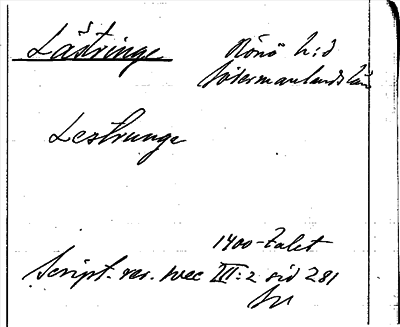 Lästringe Rönö h:d
Södermanlands län
Lestrunge
1400-talet
Script. rer. svec III:2 sid 281